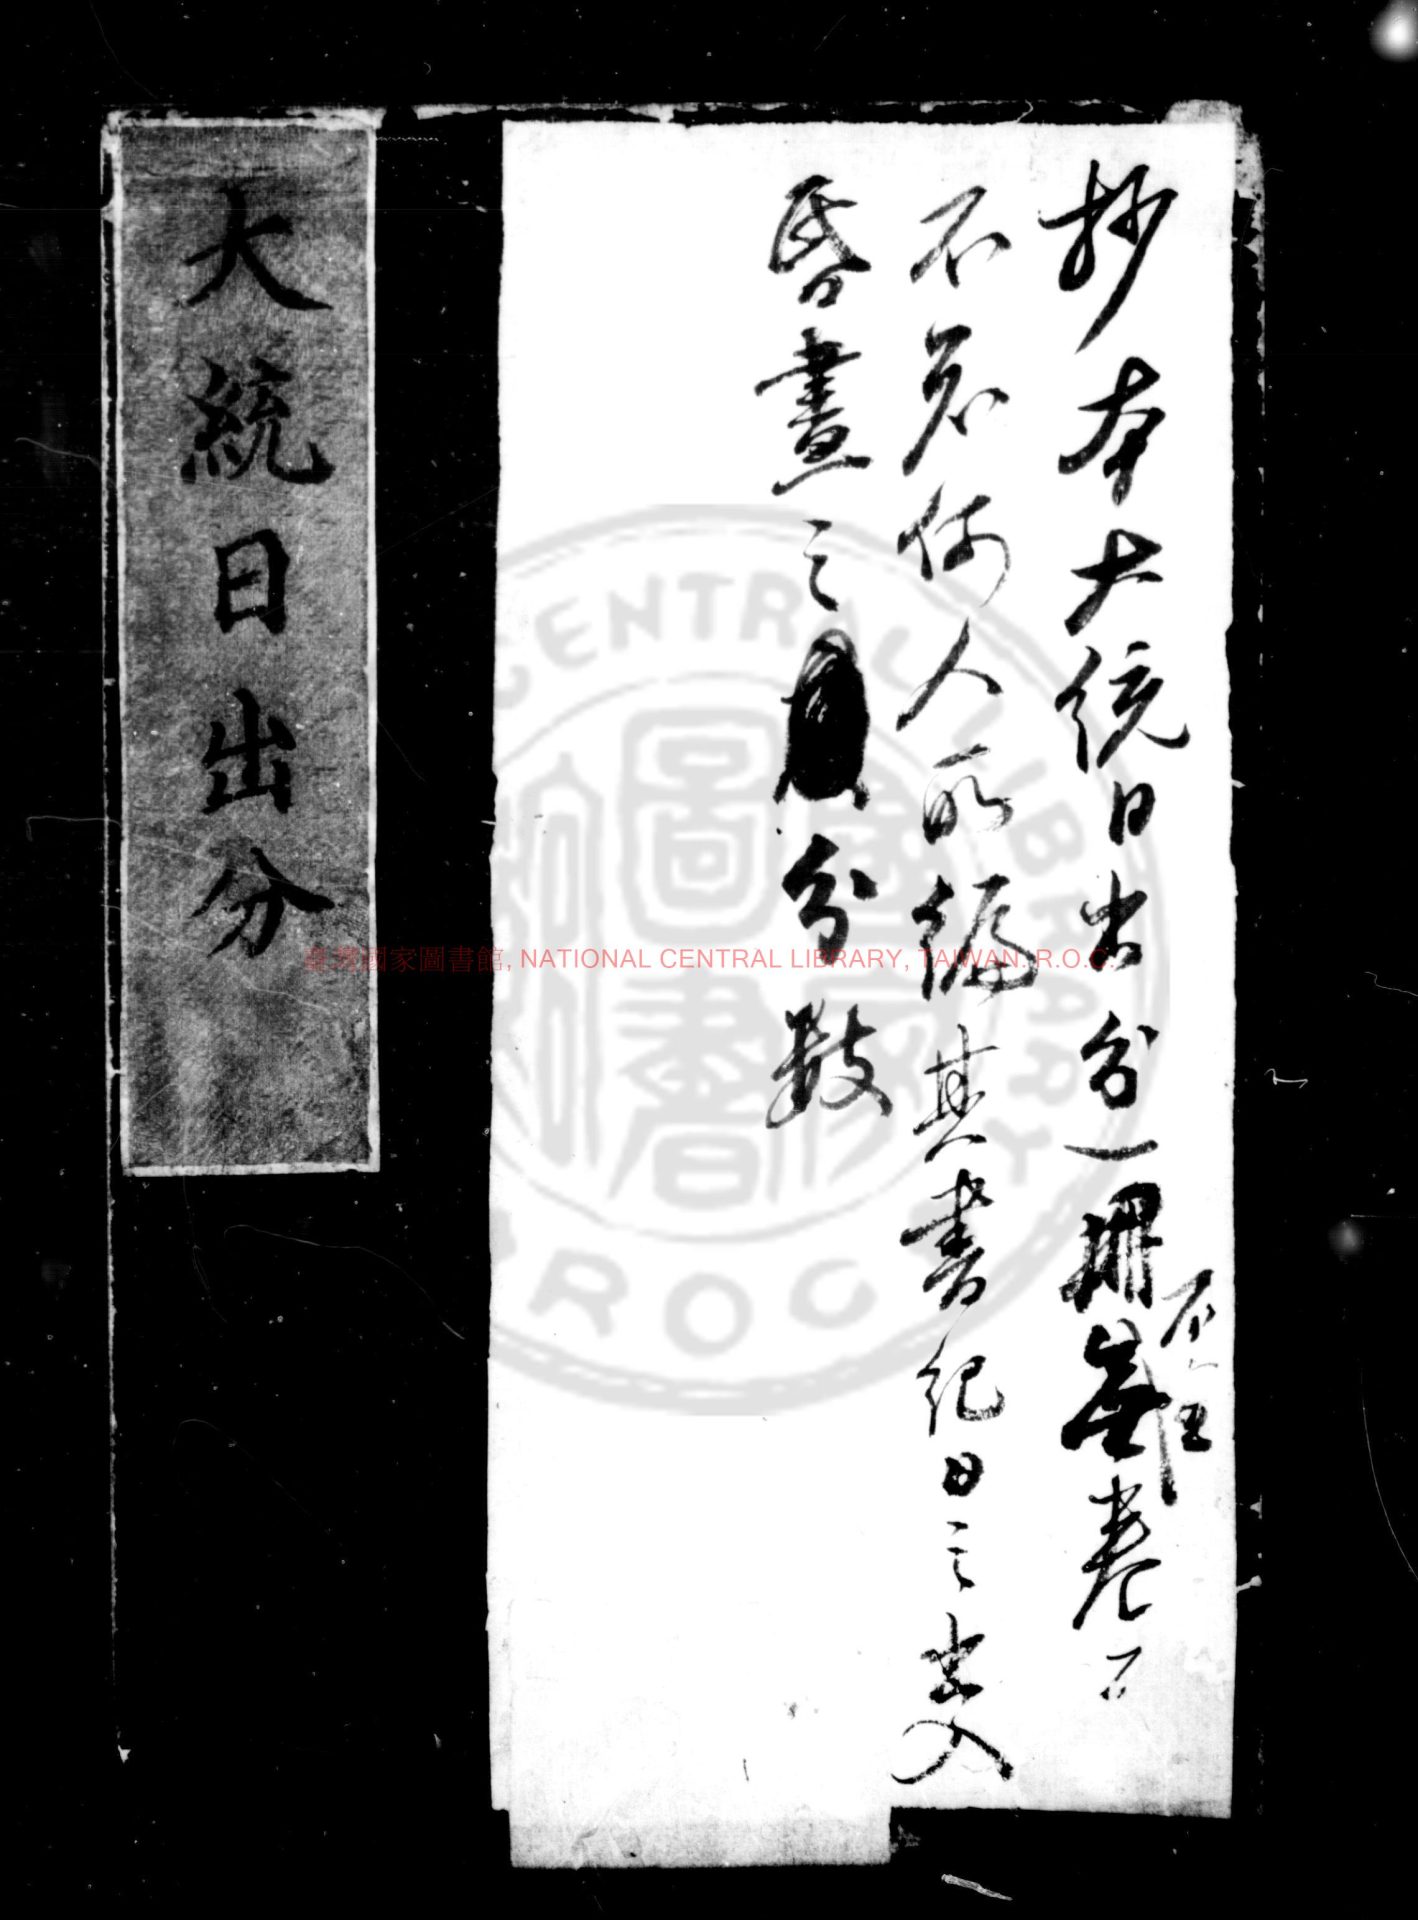 抄本大統日出分一冊無卷
不分
不著何人所編其書紀日之出入
昏晝之分數
大統日出分
臺灣國家圖書館, NATIONAL CENTRAL LIBRARY, TAIWAN, R.O.C.
CENTRAL LIBRARY
圖書
R O C